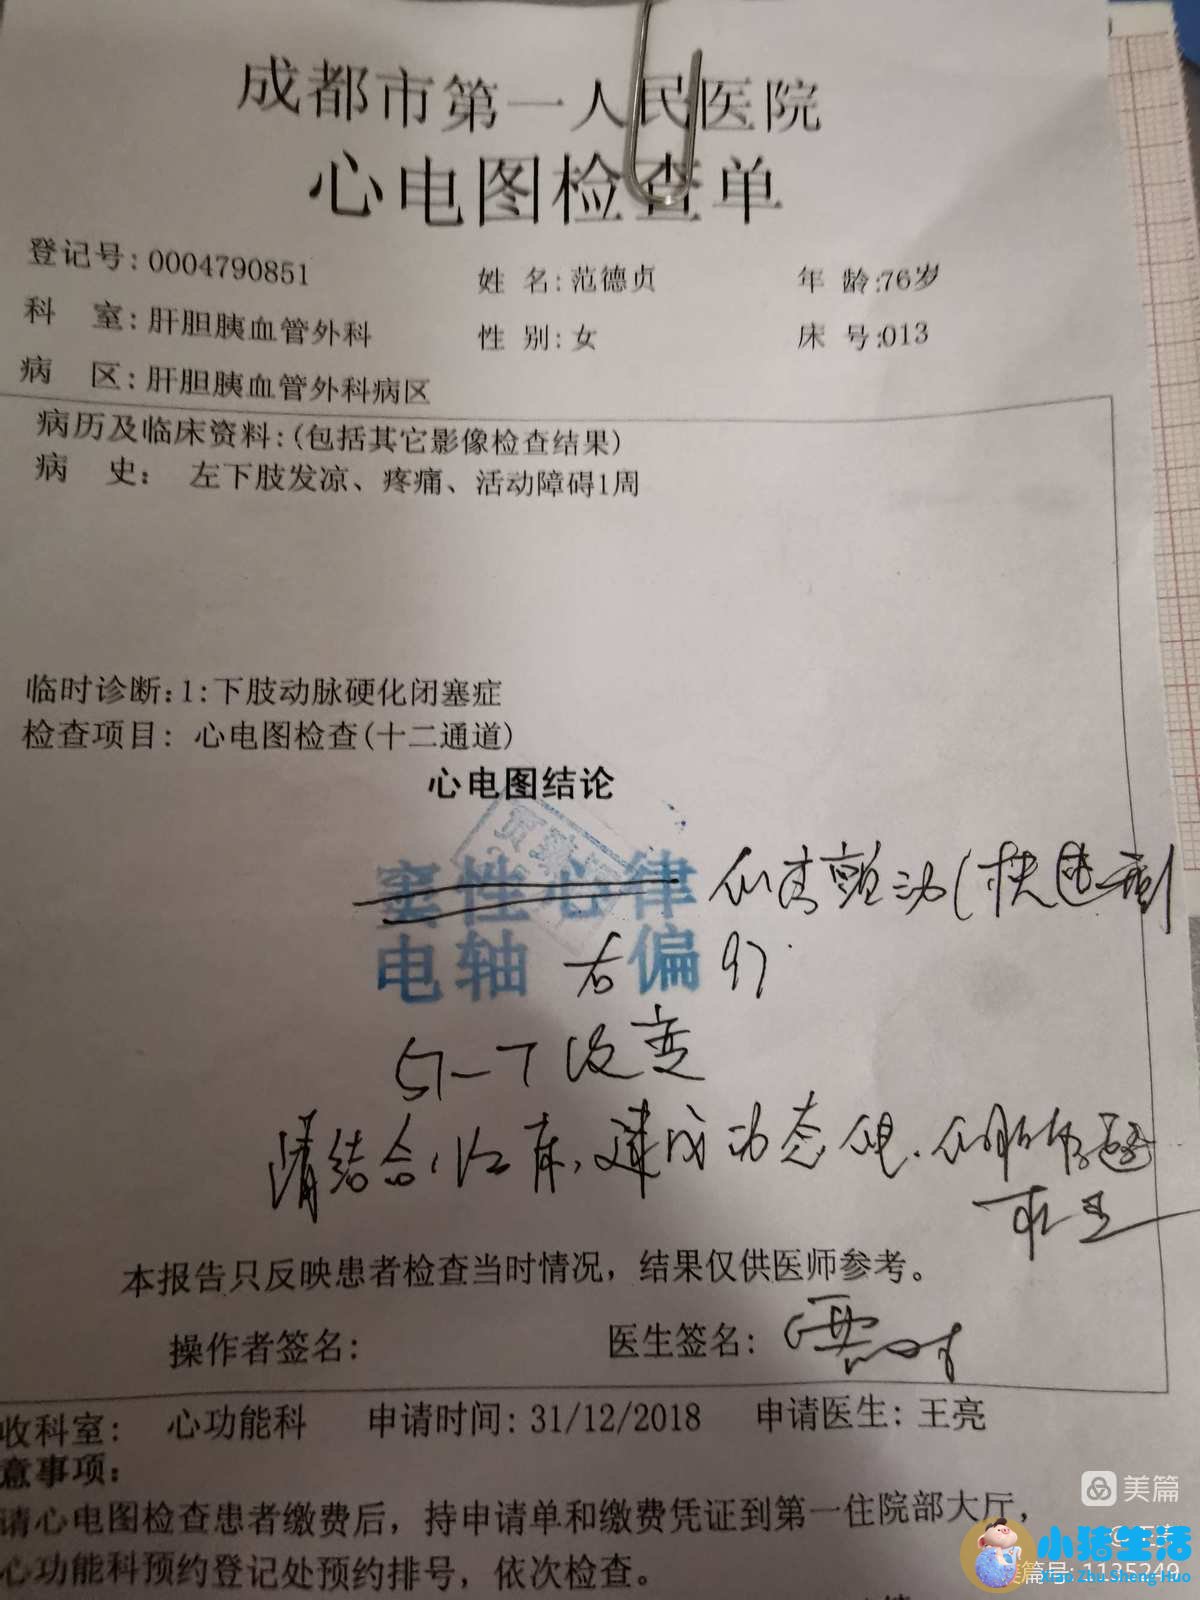 成都市第一人民医院
心电图检查单
登记号：0004790851 姓 名：范德贞 年 龄:76岁
科 室：肝胆胰血管外科 性 别：女 床 号:013
病 区：肝胆胰血管外科病区
病历及临床资料：(包括其它影像检查结果)
病 史： 左下肢发凉、疼痛、活动障碍1周
临时诊断：1：下肢动脉硬化闭塞症
检查项目： 心电图检查(十二通道)
心电图结论
窦性心律 颤动(快速型)
电轴 右 偏 97
ST-T改变
请结合临床，建议动态心电
本报告只反映患者检查当时情况，结果仅供医师参考。
操作者签名： 医生签名：
收科室： 心功能科 申请时间：31/12/2018 申请医生：王亮
意事项：
请心电图检查患者缴费后，持申请单和缴费凭证到第一住院部大厅，
心功能科预约登记处预约排号，依次检查。
美篇
小猪生活
篇号：1135249
Xiao Zhu Sheng Huo